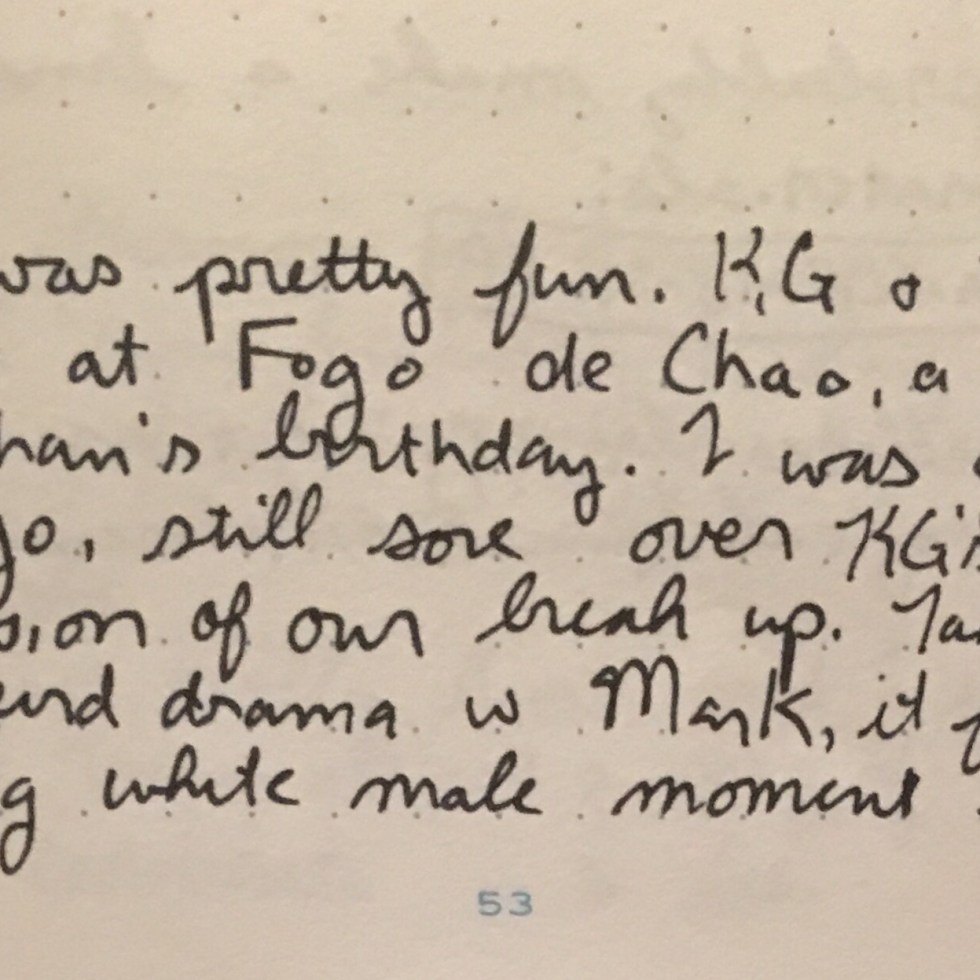 was pretty fun. KG
at Fogo de Chao, a
han's birthday. I was
go, still sore over KG's
sion of our break up. Ta
eird drama w Mark, it f
g white male moment
53